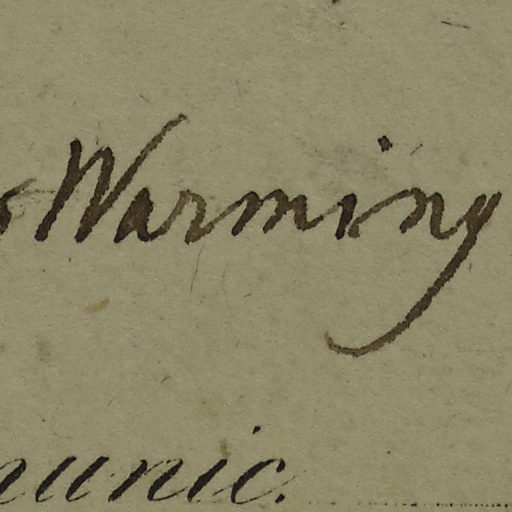 Warming
munic.